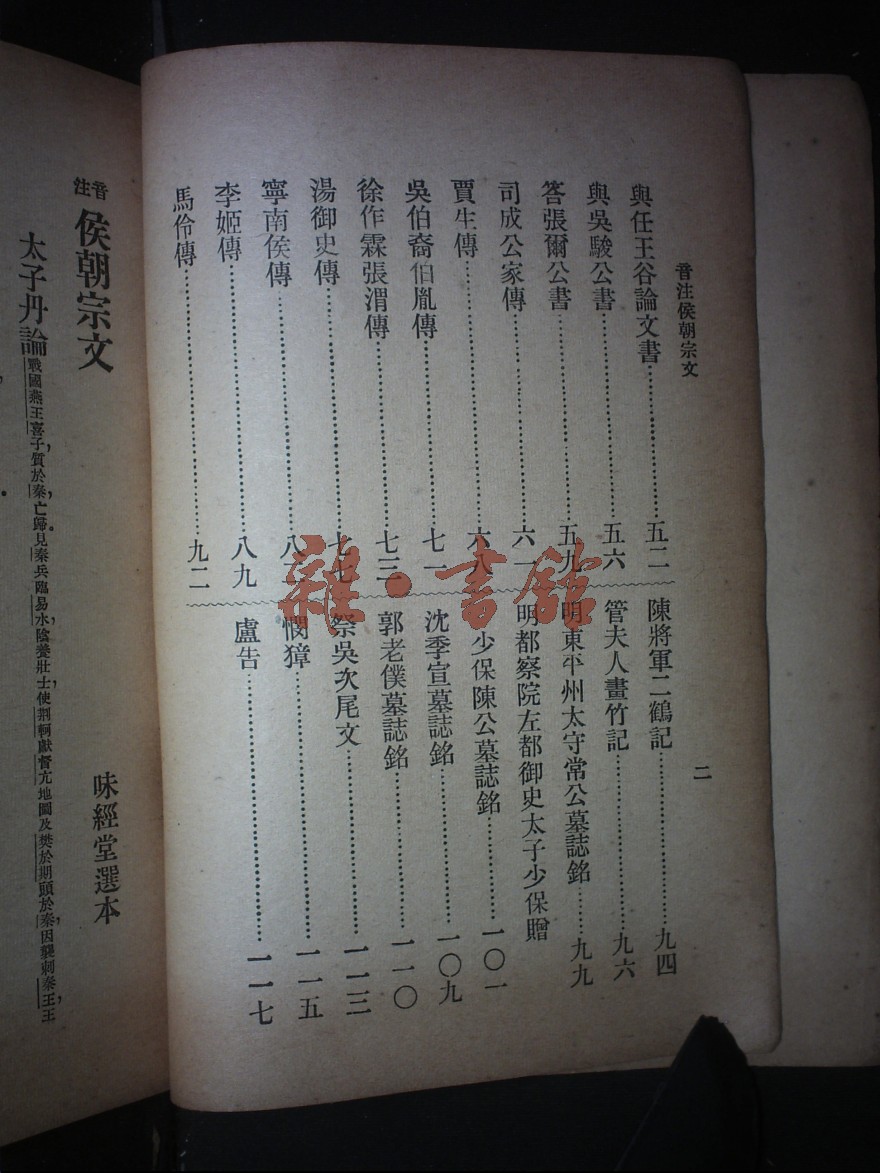 音注侯朝宗文
二
與任王谷論文書……五二
與吳駿公書……五六
答張爾公書……五九
司成公家傳……六一
賈生傳……六八
吳伯裔伯胤傳……七一
徐作霖張渭傳……七三
湯御史傳……七七
寧南侯傳……八
李姬傳……八九
馬伶傳……九二
陳將軍二鶴記……九四
管夫人畫竹記……九六
明東平州太守常公墓誌銘……九九
明都察院左都御史太子少保贈
少保陳公墓誌銘……一〇一
沈季宣墓誌銘……一〇九
郭老僕墓誌銘……一一〇
祭吳次尾文……一一三
憫獐……一一五
盧告……一一七
音注 侯朝宗文
味經堂選本
太子丹論 戰國燕王喜子,質於秦,亡歸。見秦兵臨易水,陰養壯士,使荆軻獻督亢地圖及樊於期頭於秦,因襲刺秦王,王
雜·書館